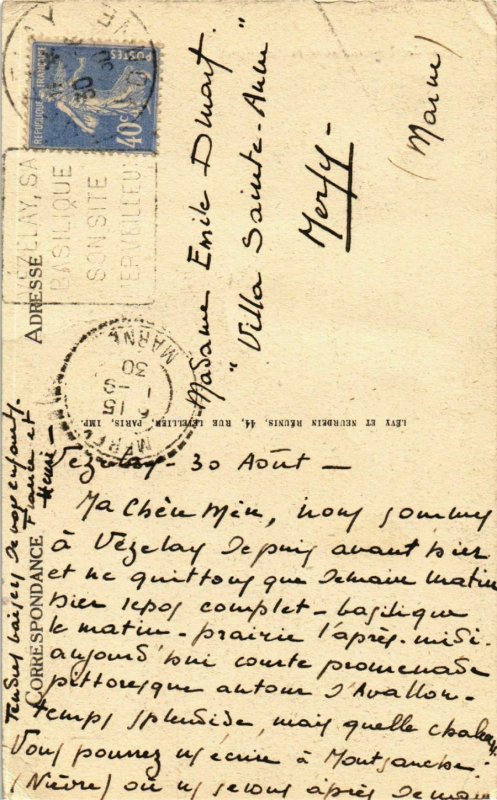 Vézelay - 30 Août -
Ma Chère Mère, nous sommes
à Vézelay depuis avant hier
et ne quittons que demain matin
hier repos complet - basilique
le matin - prairie l'après-midi.
aujourd'hui courte promenade
pittoresque autour d'Avallon -
temps splendide, mais quelle chaleur.
Vous pourrez m'écrire à Montsauche
(Nièvre) où ns serons après demain
Tendres baisers de vos enfants.
France et
Henri -
CORRESPONDANCE
ADRESSE
Madame Emile Dmart
"Villa Sainte-Anne"
Merfy -
(Marne)
LÉVY ET NEURDEIN RÉUNIS, 44, RUE LETELLIER, PARIS, IMP.
POSTES
REPUBLIQUE FRANÇAISE
40c
VÉZELAY, SA
BASILIQUE
SON SITE
MERVEILLEUX
MARNE
15
30